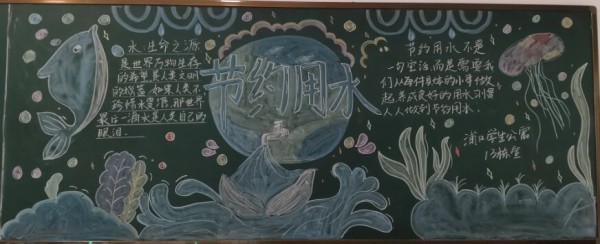 水:生命之源
是世界万物生存
的希望是人类文明
的线签.如果人类不
珍惜水资源,那世界
最后一滴水是人类自己的
眼泪.
节约用水
节约用水不是
一句空话,而是需要我
们从每件具体的小事做
起,养成良好的用水习惯
人人做到节约用水.
浦口学生公寓
13栋宣